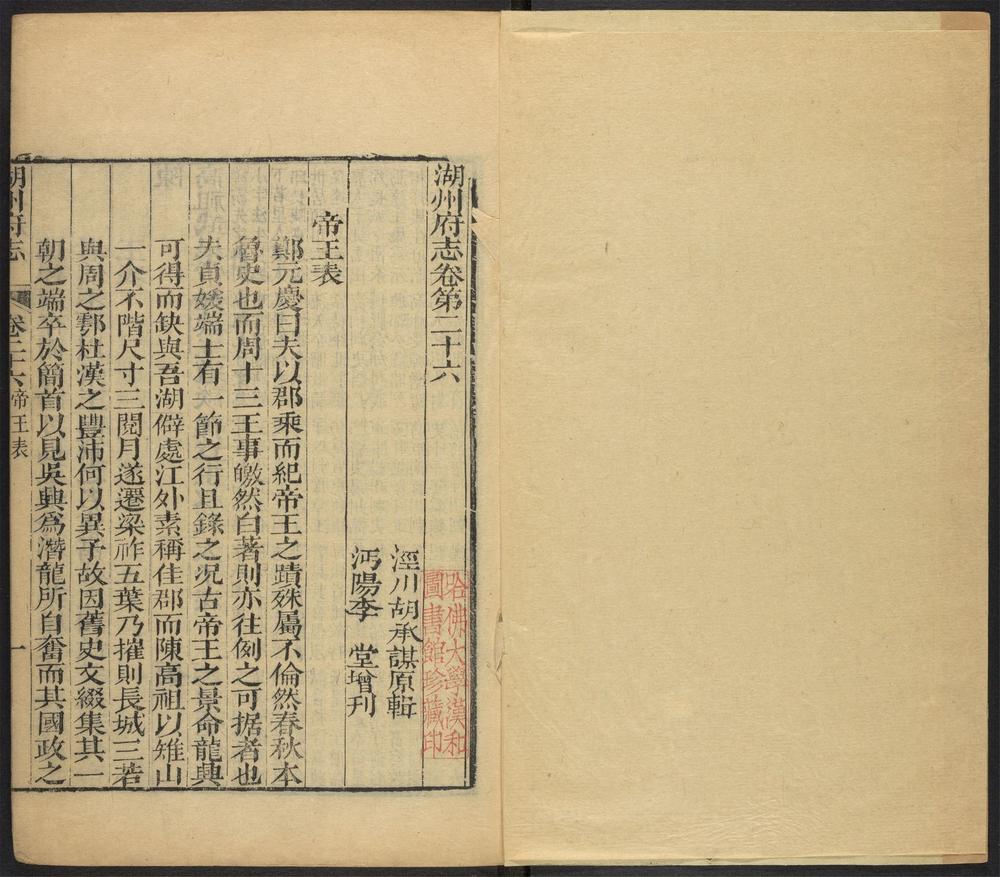 湖州府志卷第二十六
涇川胡承謀原輯
沔陽李　堂增刊
哈佛大學漢和
圖書館珍藏印
帝王表
鄭元慶曰夫以郡乘而紀帝王之蹟殊屬不倫然春秋本
魯史也而周十三王事皦然白著則亦往例之可据者也
夫貞媛端士有一節之行且錄之况古帝王之景命龍興
可得而缺與吾湖僻處江外素稱佳郡而陳高祖以雉山
一介不階尺寸三閱月遂遷梁祚五葉乃摧則長城三若
與周之鄠杜漢之豐沛何以異予故因舊史文綴集其一
朝之端卒於簡首以見吳興爲潛龍所自奮而其國政之
湖州府志　卷二十六帝王表　一